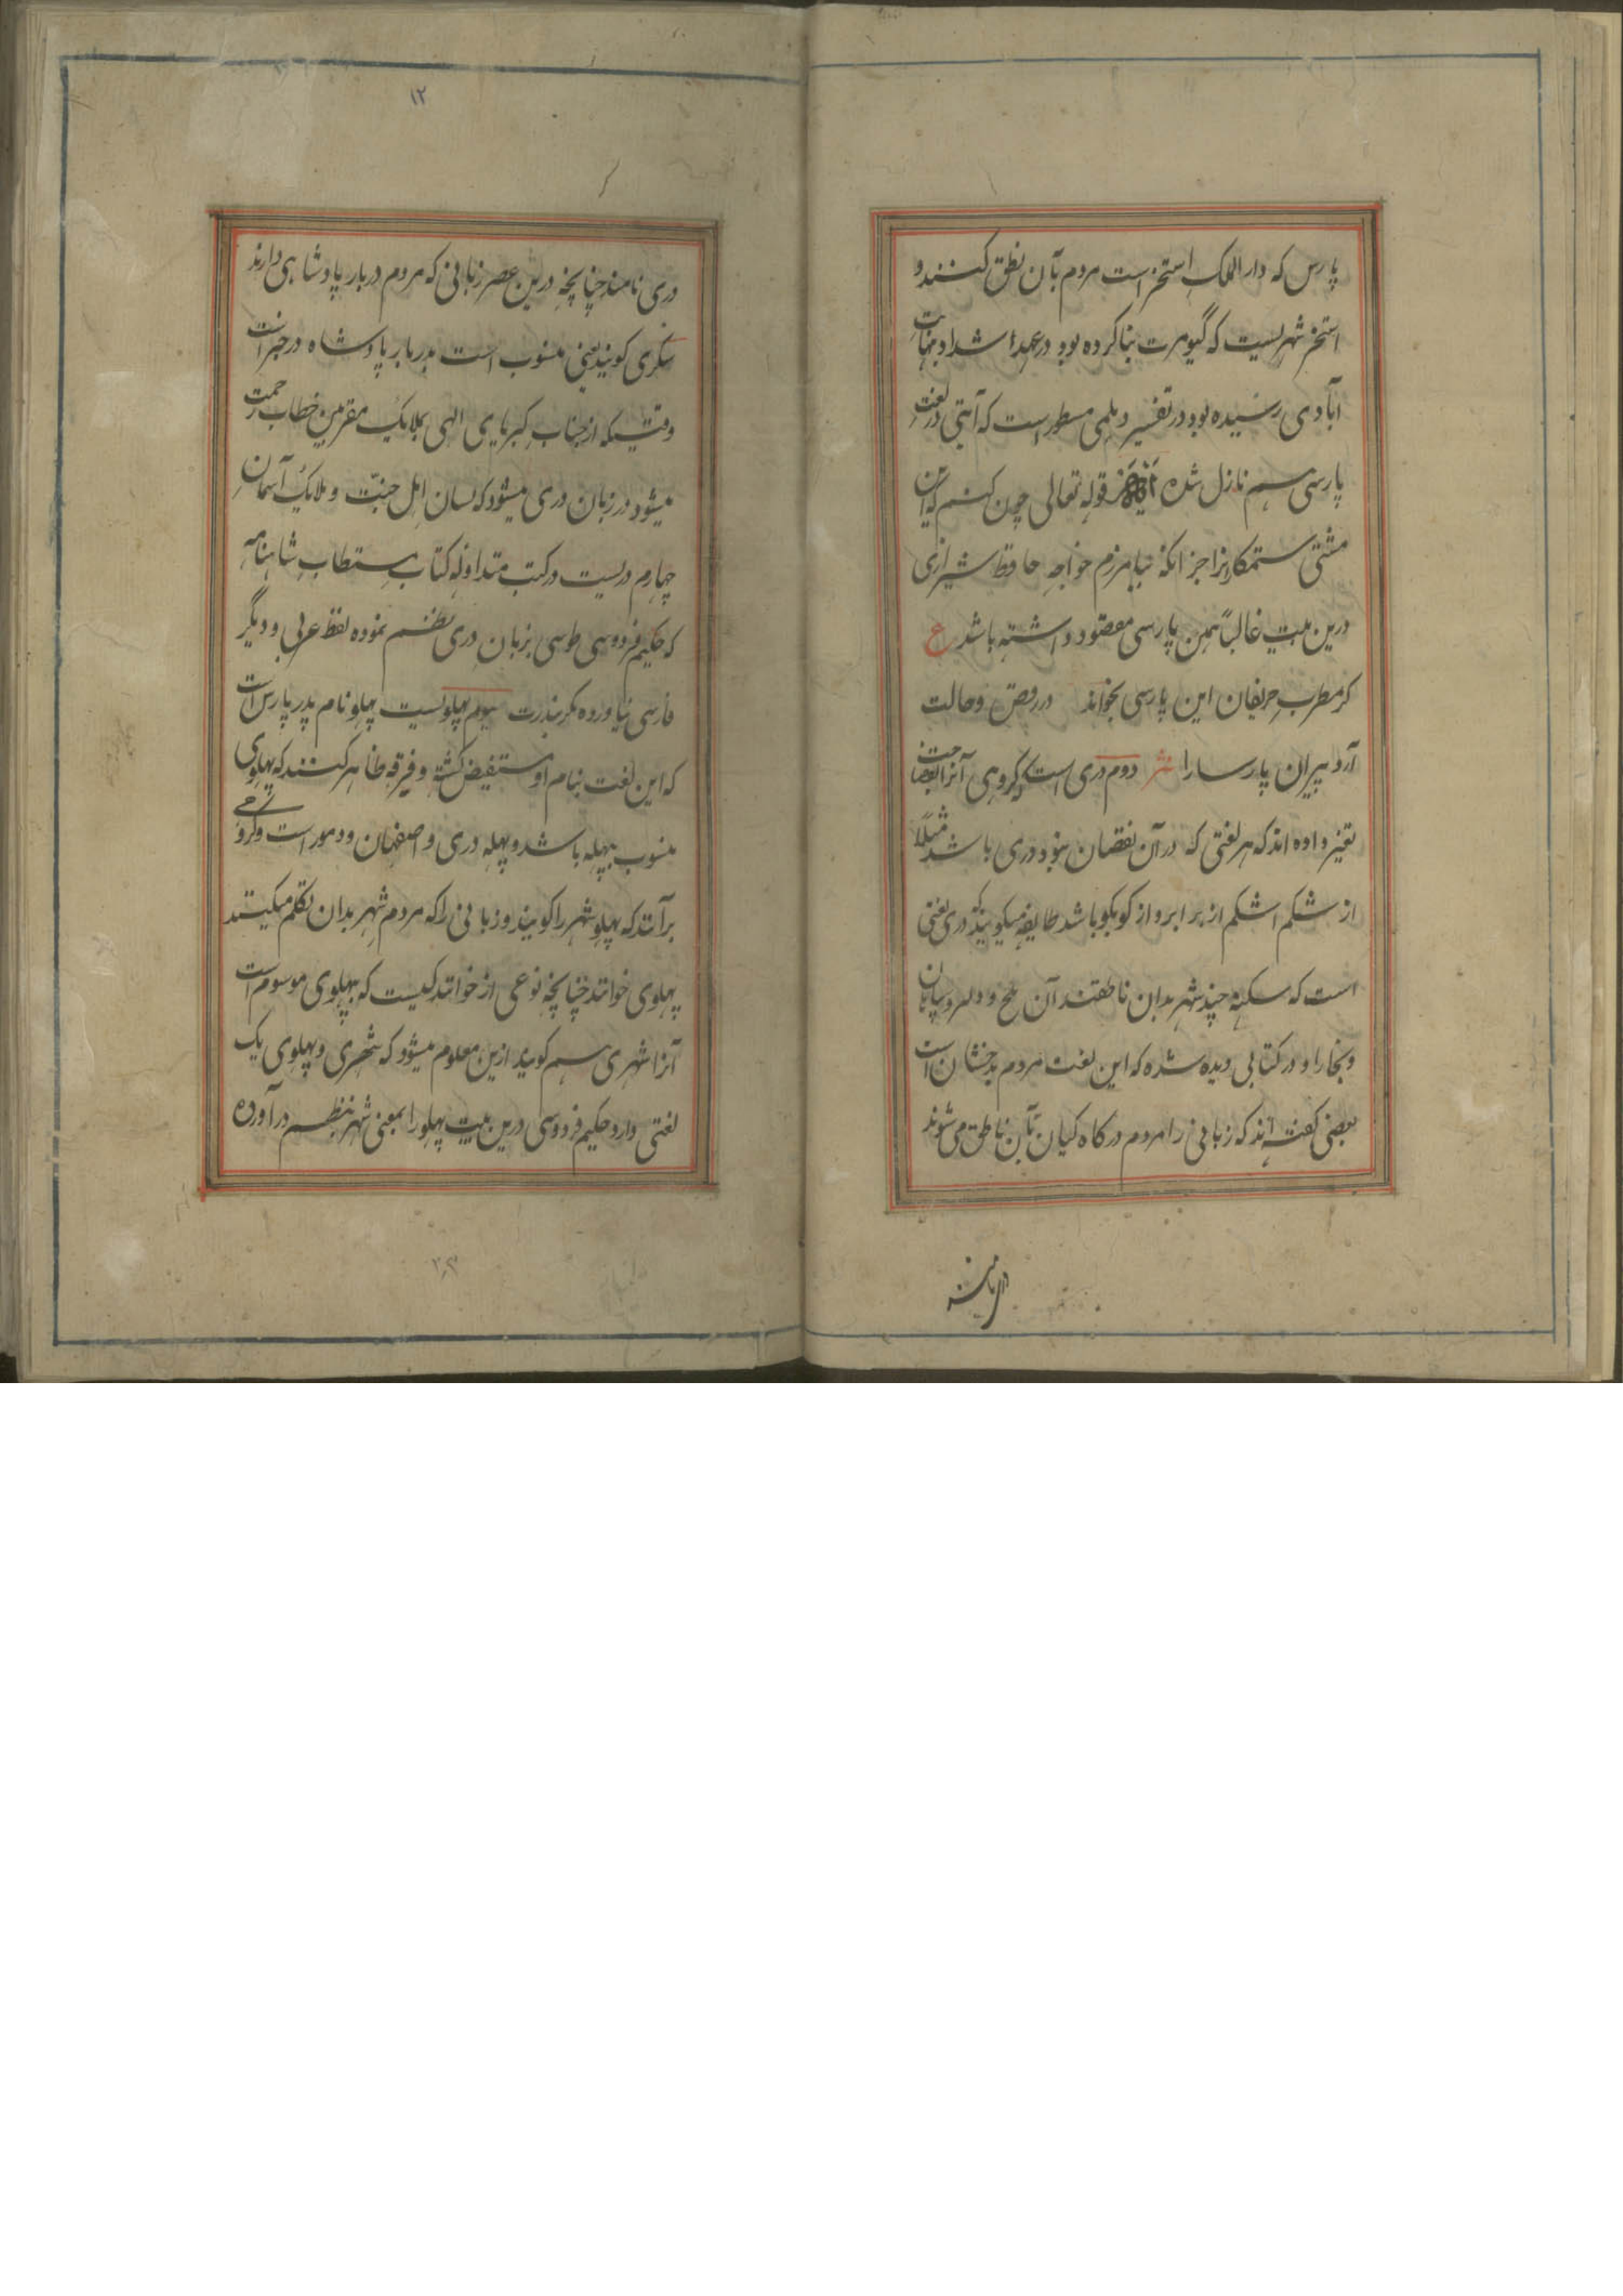 پارس که دار الملک استخر است مردم بآن نطق کنند و
استخر شهریست که گیومرت بنا کرده بود در عهد شداد بنهایت
آبادی رسیده بود در تفسیر دیلمی مسطور است که آیتی در لغت
پارسی هم نازل شده قوله تعالی چون کنم که این
مشتی ستمکار نرا جز انکه نیامرزم خواجه حافظ شیرازی
درین بیت غالباً همین پارسی مقصود داشته باشد ع
کر مطرب حریفان این پارسی بخواند در رقص و حالت
آرد پیران پارسا را نثر دوم دری است که کروهی آنرا بفصاحت
تعبیر داده اند که هر لغتی که در آن نقصان نبود دری باشد مثلاً
از شکم اشکم از بر ابر و از کو بکو باشد طایفه میکویند که دری لغتی
است که سکنه چند شهر بدان ناطقند آن بلخ و و بامیان
و بخارا و در کتابی دیده شده که این لغت مردم بدخشان است
بعضی کفته اند که زبانی را مردم درکاه کیان بآن ناطق می شوند
دری نامند
۱۲
دری نامند چنانچه درین عصر زبانی که مردم دربار پادشاهی دارند
کویند یعنی منسوب است بدربار پادشاه در خبر است
وقتیکه از جناب کبریای الهی بملایک مقربین خطاب رحمت
میشود در زبان دری میشود که لسان اهل جنّت و ملایک آسمان
چهارم دریست در کتب متداوله کتاب مستطاب شاهنامه
که حکیم فردوسی طوسی بزبان دری نظم نموده لفظ عربی و دیگر
فارسی نیاورده مکر بندرت سیوم پهلویست پهلو نام پدر پارس است
که این لغت بنام او مستفیض کشته و فرقه ظاهر کنند که پهلوی
منسوب بپهله باشد و پهله دری و اصفهان و دمور است و کروهی
برآنند که پهلو شهر را کویند و زبانی را که مردم شهر بدان تکلم میکنند
پهلوی خوانند چنانچه نوعی از خوانندکیست که بپهلوی موسوم است
آنرا شهری هم کویند ازین معلوم میشود که شهری و پهلوی یک
لغتی دارد حکیم فردوسی درین بیت پهلو را بمعنی شهر بنظم درآورده